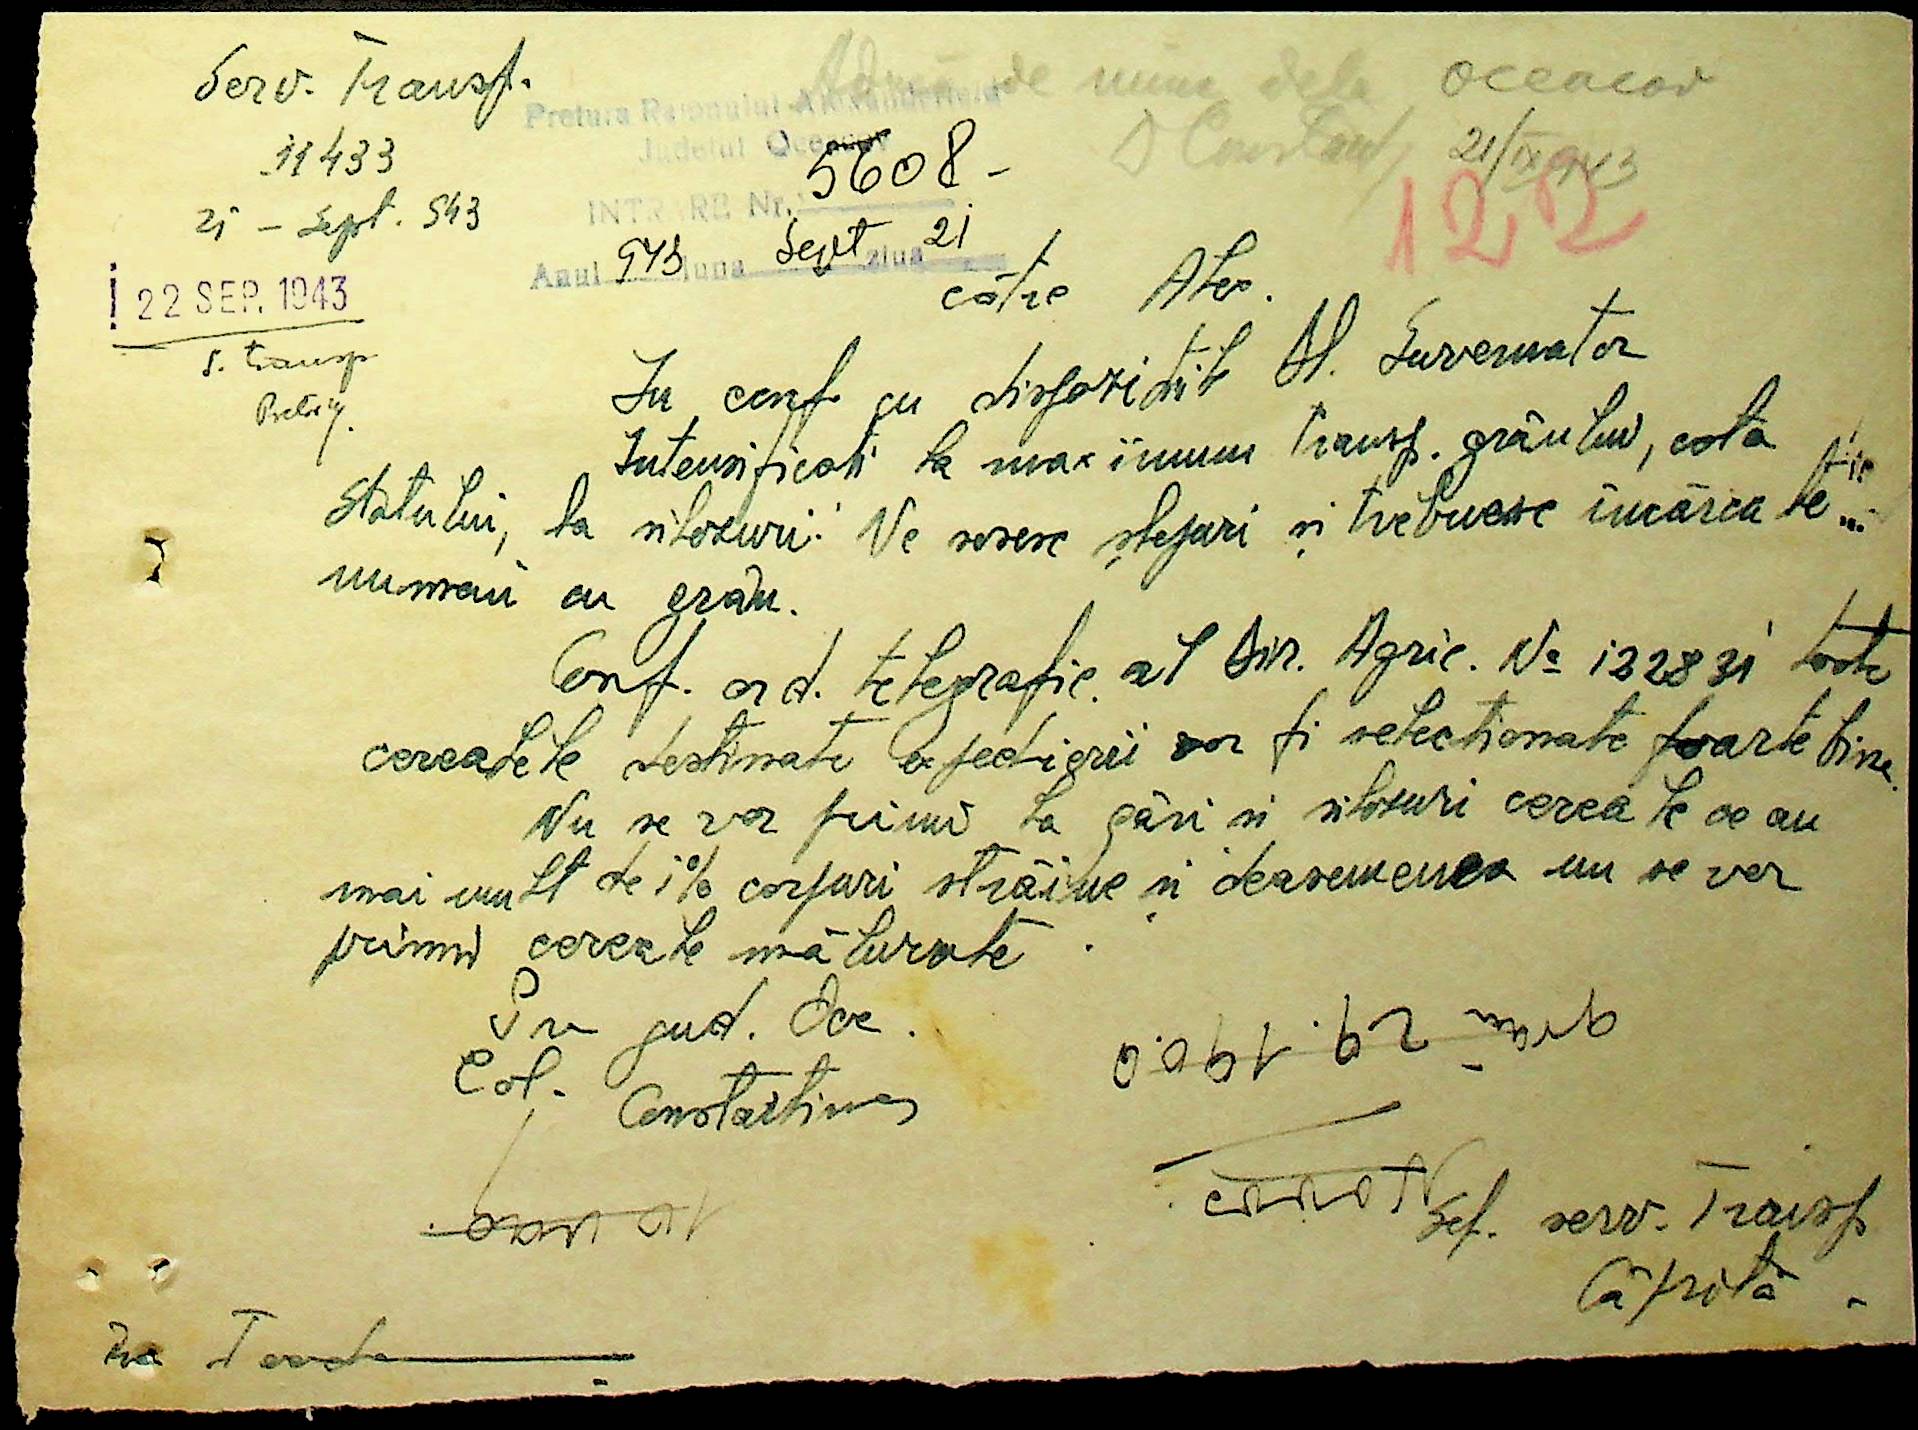 Serv. Transp.
11433
21 - Sept. 943
22 SEP. 1943
S. transp
Pretura Raionului Alexanderfeld
Judetul Oceacov
INTRARE Nr. 5608 -
Anul 943 luna Sept ziua 21
de mine dela Oceacov
D Constant 21/IX 943
122
către Alex.
In conf cu dispozitiile Dl. Guvernator
Intensificati la maximum transp. grâului, cota
Statului, la silozuri. Ve sosesc șlepuri și trebuesc încărcate
numai cu grâu.
Conf. ord. telegrafic al Dir. Agric. No 122831 toate
cerealele destinate expedierii vor fi selectionate foarte bine.
Nu se vor primi la gări si silozuri cereale ce au
mai mult de 1% corpuri străine și deasemenea nu se vor
primi cereale măturate.
Pr jud. Oce.
Col. Constantinescu
grâu 29.190.0
Sef. serv. Transp
Căpriță -